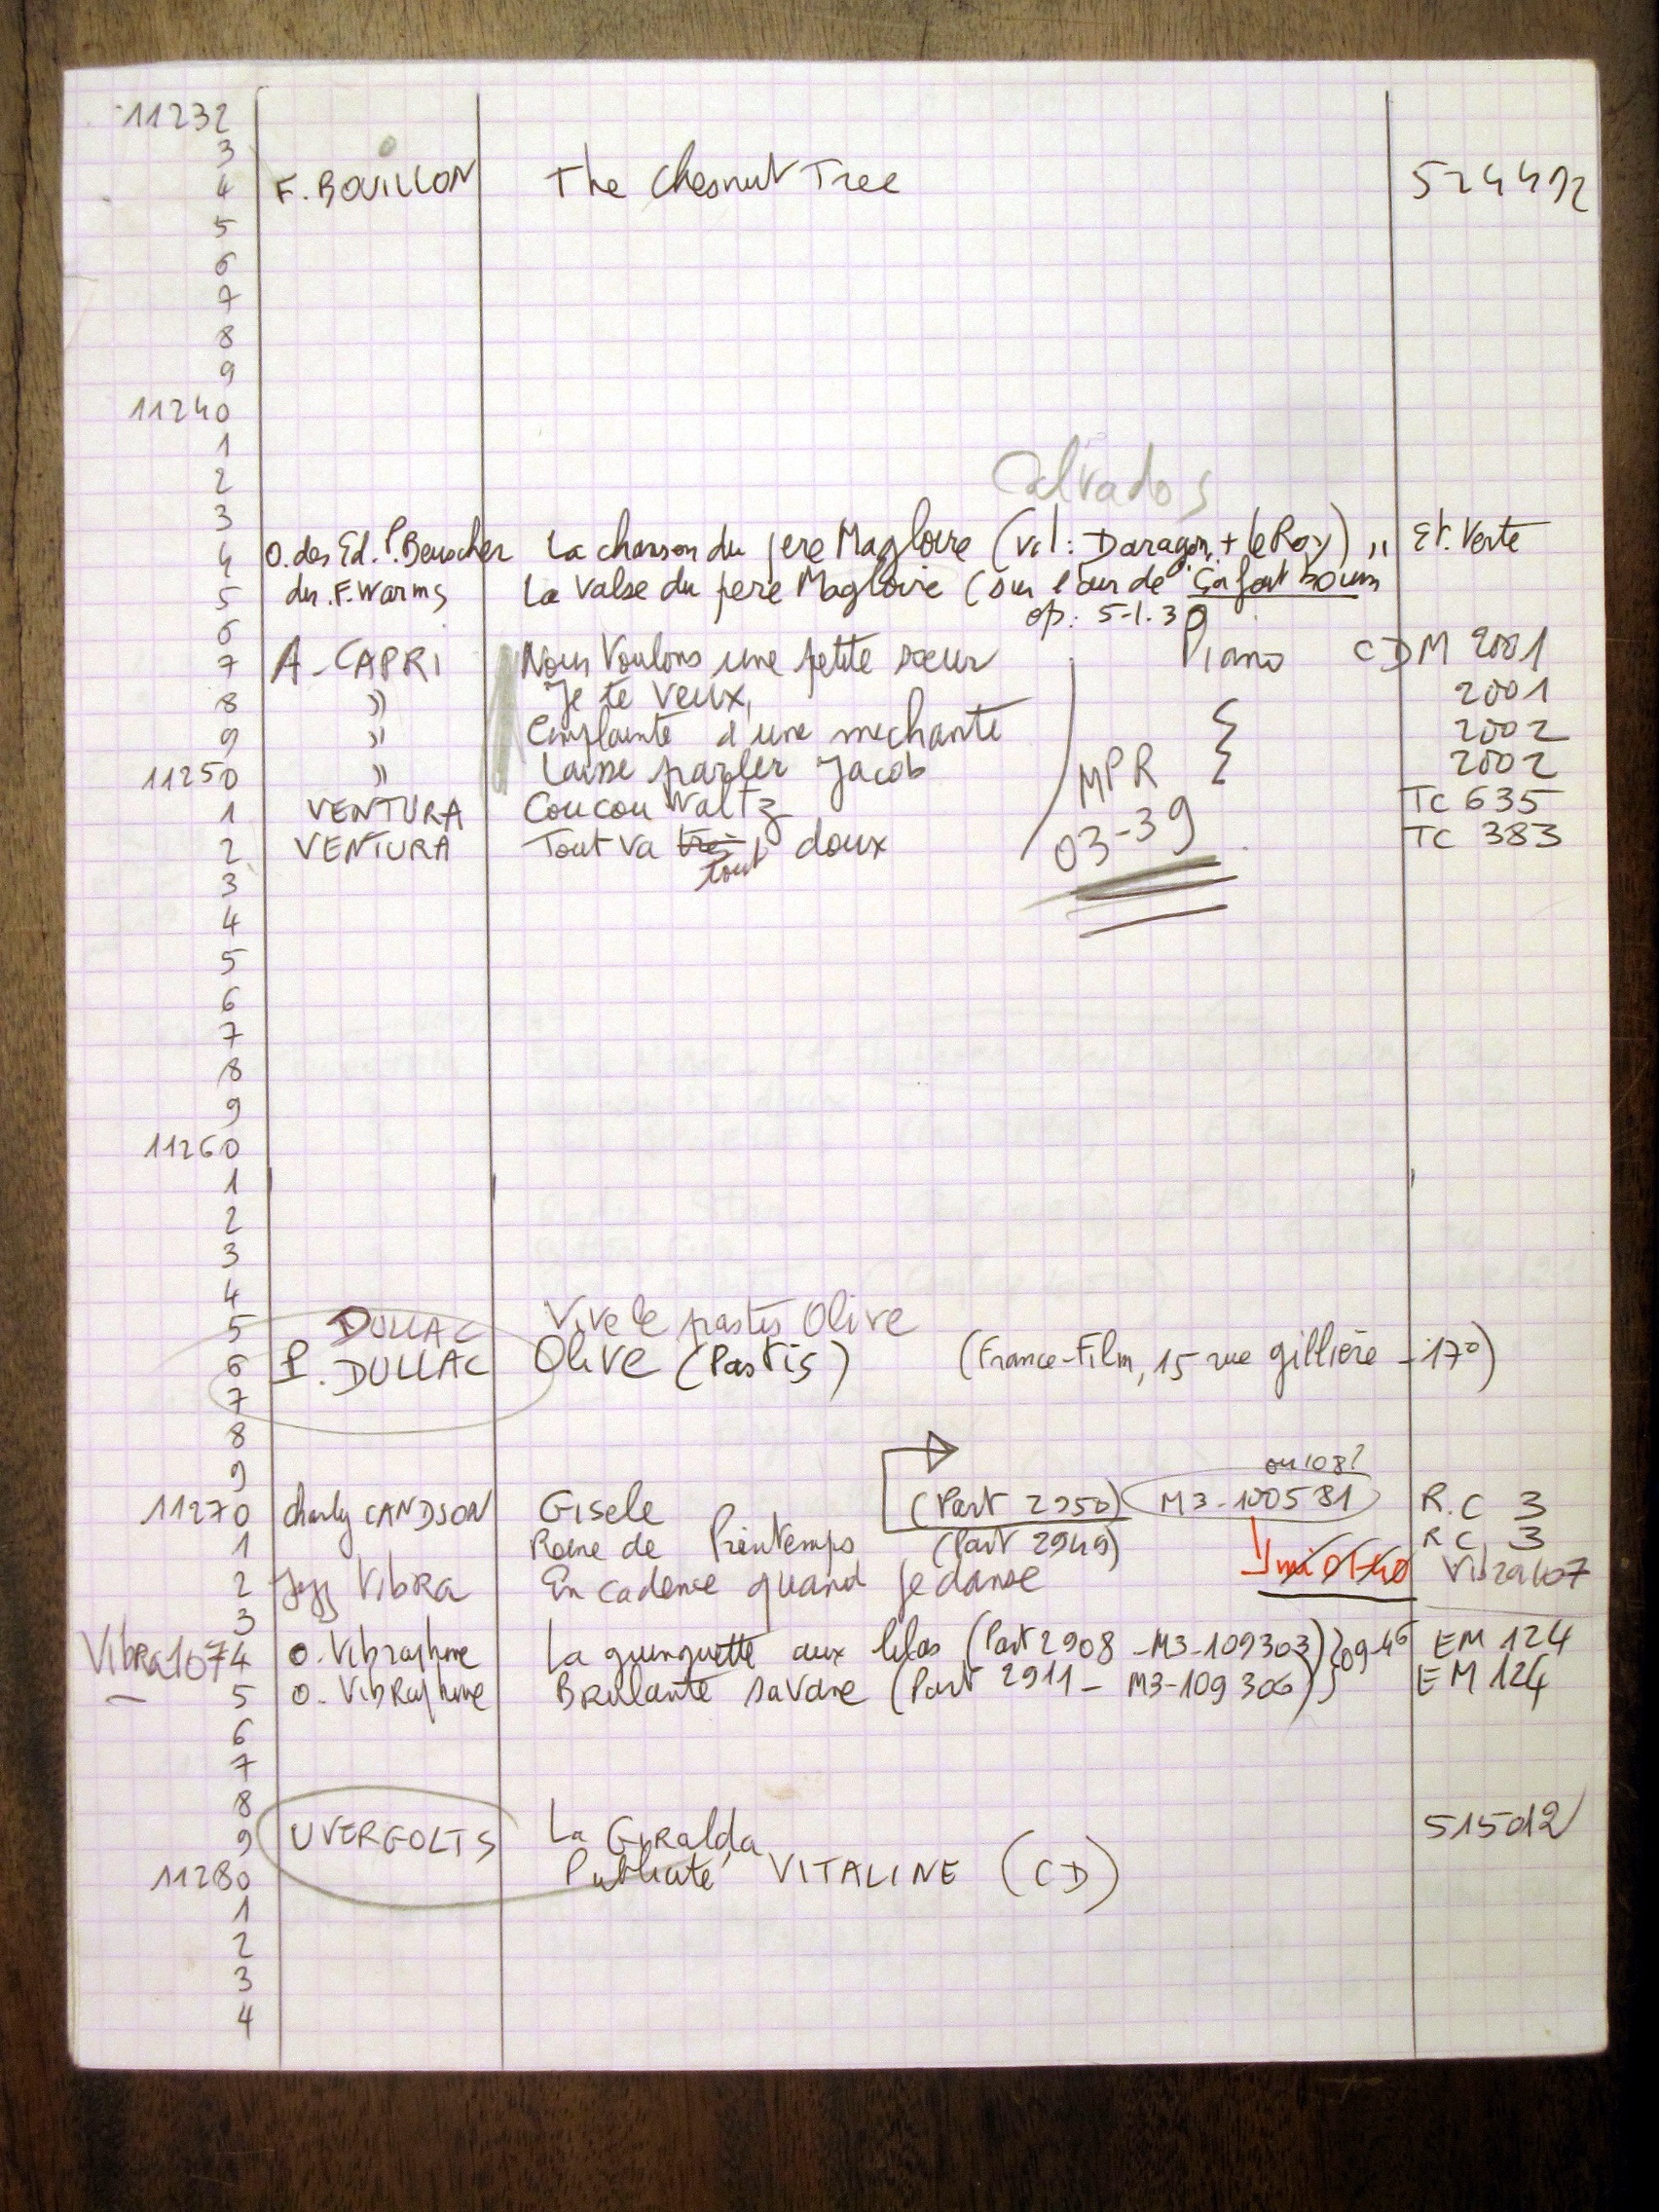 11232
3
4 F. BOUILLON The Chesnut Tree 524492
5
6
7
8
9
11240
1
2
Calvados
3
4 O. des Ed. P. Beuscher La chanson du pere Magloire (Vol: Daragon + Le Roy) " Et. Verte
5 du. F. Warms La Valse du pere Magloire (sur l'air de Ça fait boum
6 op: 5-1.39
7 A. CAPRI Nous Voulons une petite soeur Piano CDM 2001
8 " Je te veux 2001
9 " Complainte d'une mechante 2002
11250 " Laisse parler Jacob MPR 2002
1 VENTURA Coucou Waltz TC 635
2 VENTURA Tout va très doux 03-39 TC 383
tout
3
4
5
6
7
8
9
11260
1
2
3
4
5 DULLAC Vive le pastis Olive
6 P. DULLAC Olive (Pastis) (France-Film, 15 rue gillière - 17°)
7
8
9 ou 108?
11270 Charly CANDSON Gisele (Part 2950) M3-100581 R.C 3
1 Reine de Printemps (Part 2949) RC 3
2 Jazz Vibra En cadence quand je danse Vibra 107
3
Vibra 107 4 O. Vibraphone La guinguette aux lilas (Part 2908 - M3-109303) } 09-46 EM 124
5 O. Vibraphone Brulante savane (Part 2911 - M3-109306) } EM 124
6
7
8
9 UVERGOLTS La Giralda 515012
11280 Publicité VITALINE (CD)
1
2
3
4